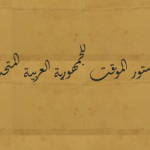 ستور الموقت للجمهورية العربية المتحد